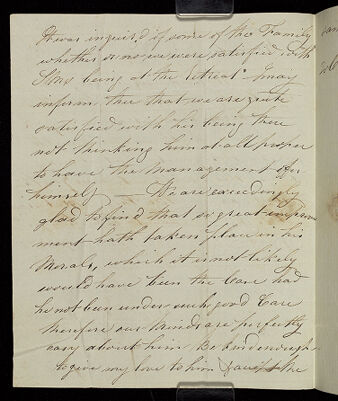 It was inquired if some of the Family
whether or no we were satisfied with
being at the retreat I may
inform thee that we are quite
satisfied with his being there
not thinking him at all proper
to have the management of
himself — We are exceedingly
glad to find that so great improve
ment hath taken place in his
Morals, which it is not likely
would have been the Case had
he not been under such good Care
therefore our minds are perfectly
easy about him Be kind enough
to give my love to him & accept the